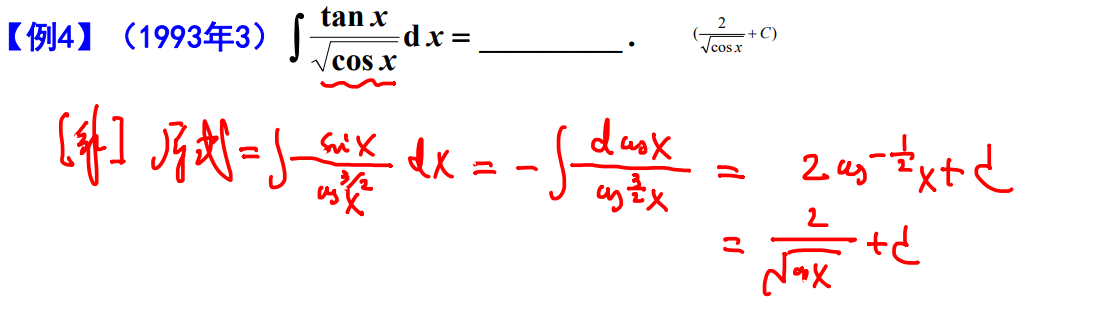 【例4】（1993年3） ∫ tan x / √cos x d x = ________ . (2/√cos x + C)
[解] 原式 = ∫ sin x / cos^{3/2} x dx = - ∫ d cos x / cos^{3/2} x = 2 cos^{-1/2} x + C
= 2/√cos x + C